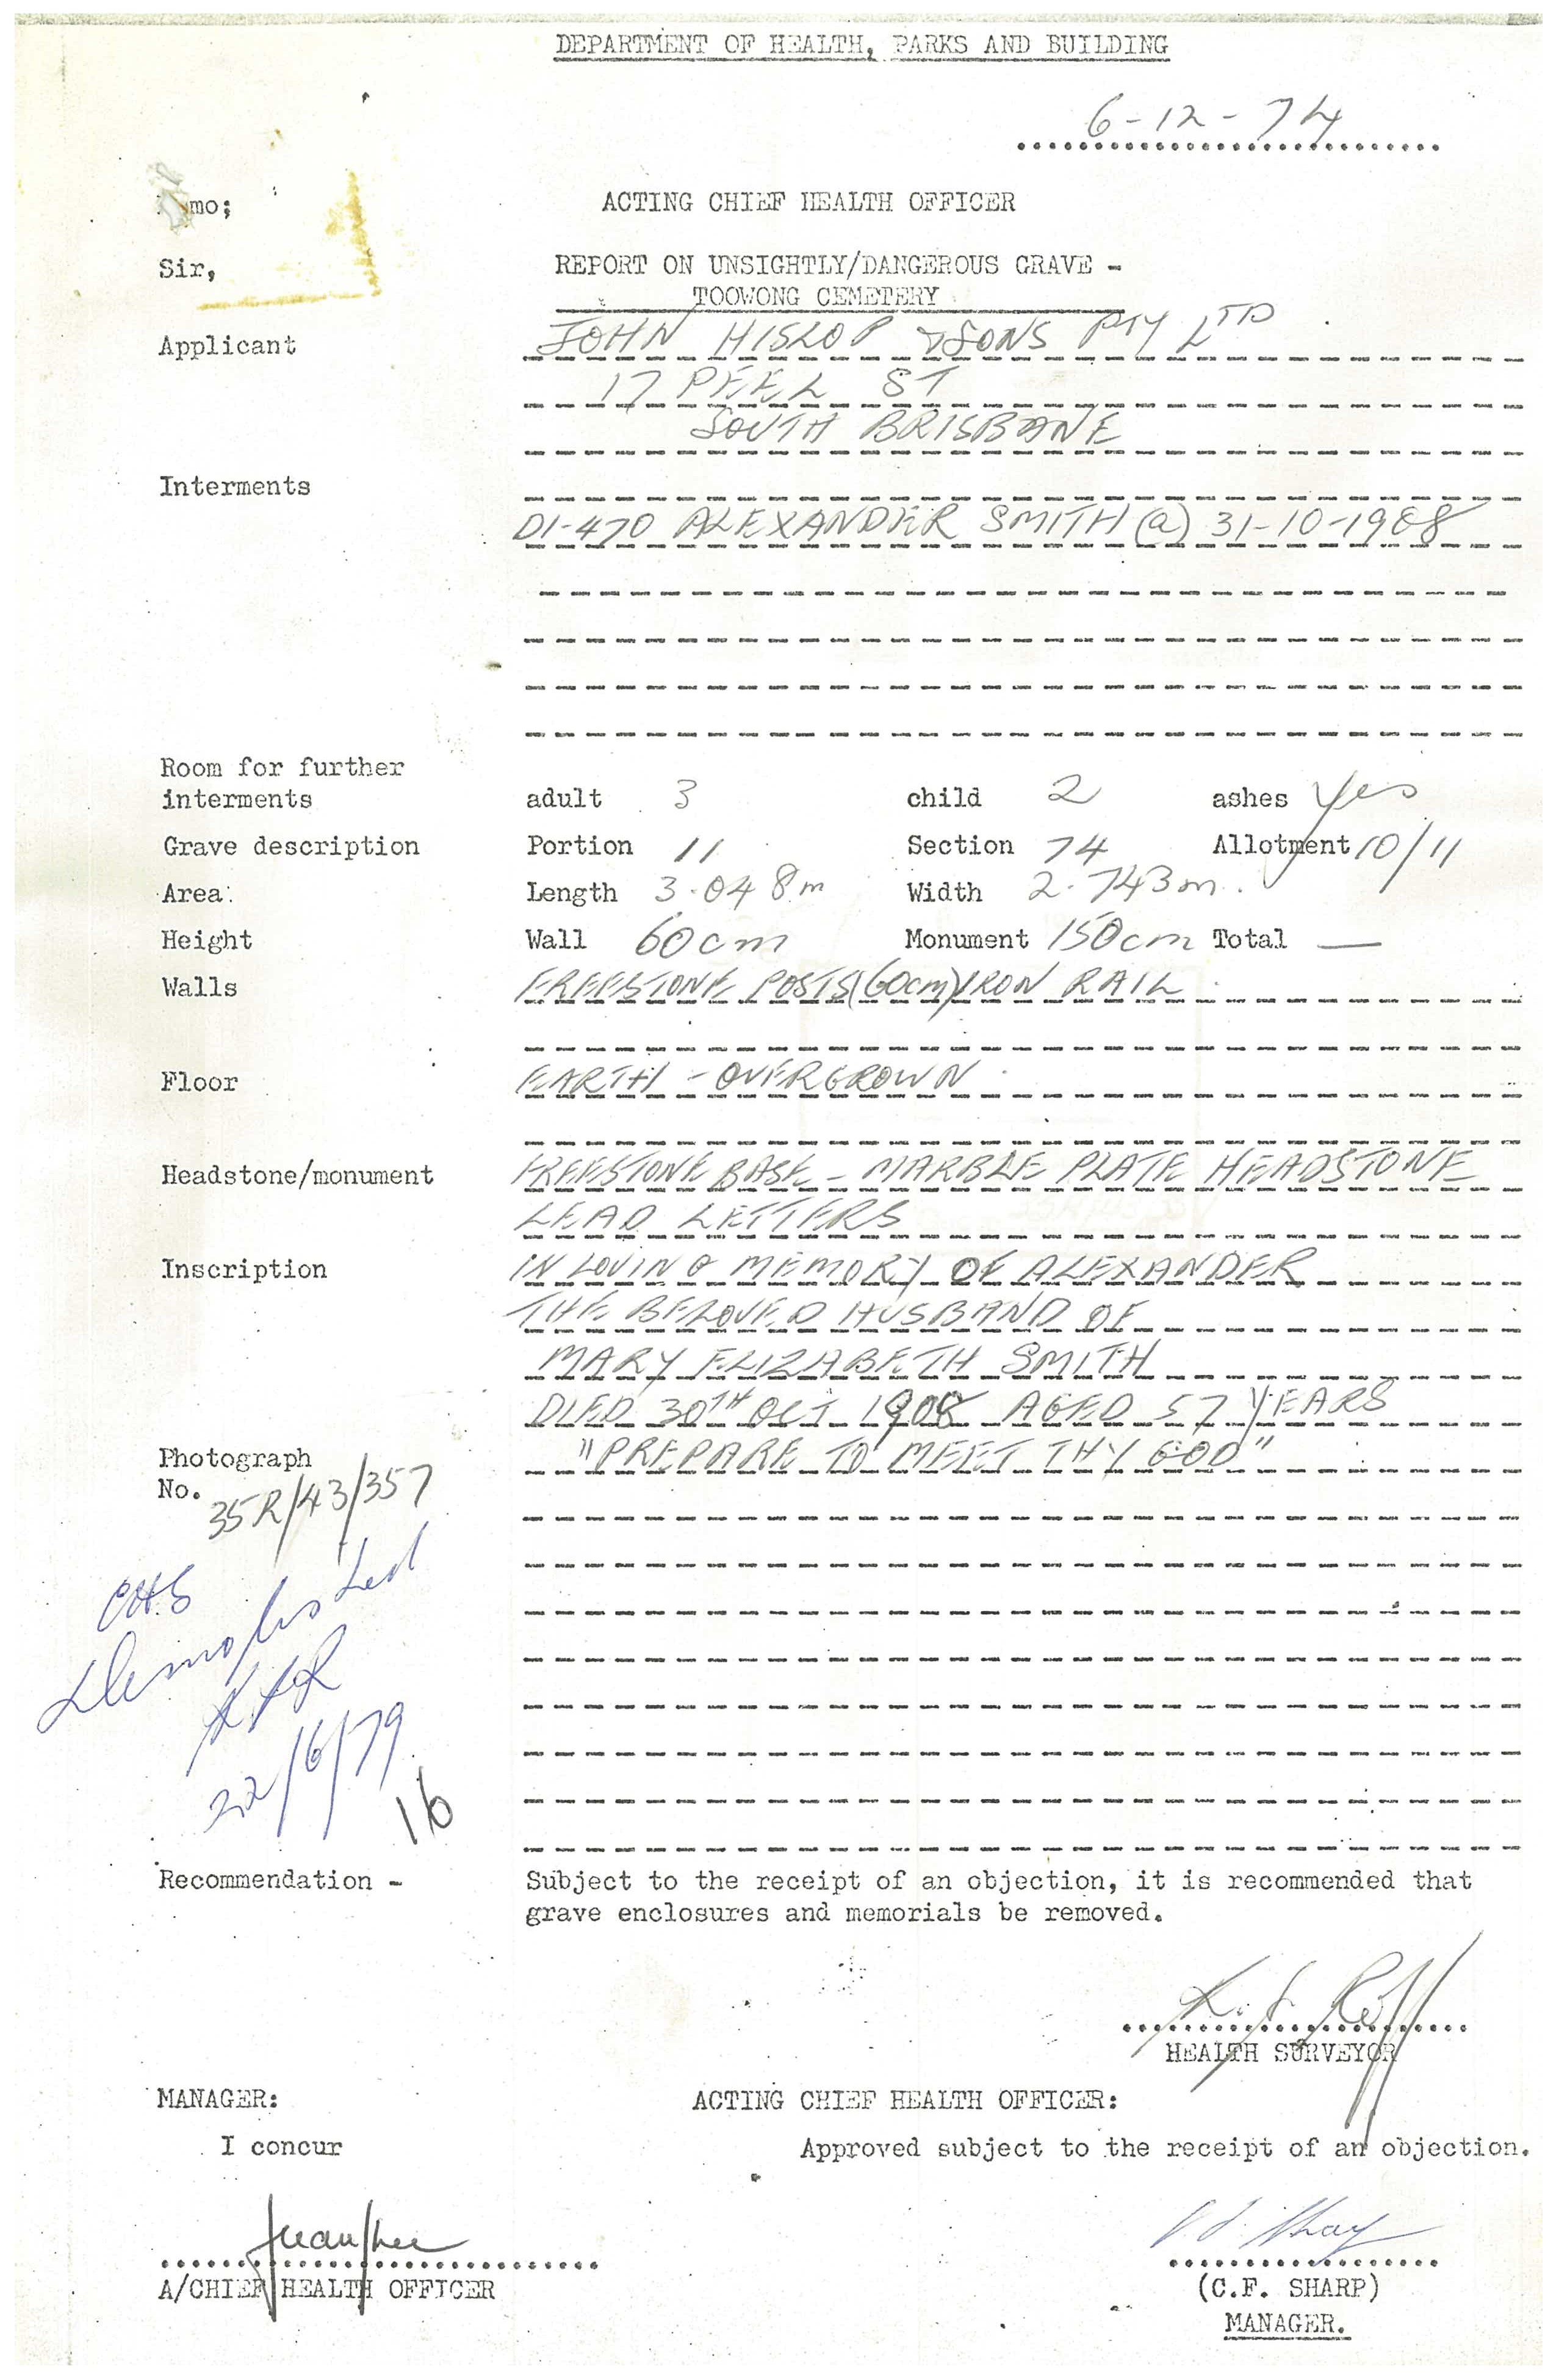 DEPARTMENT OF HEALTH, PARKS AND BUILDING
6-12-74
mo; ACTING CHIEF HEALTH OFFICER
Sir, REPORT ON UNSIGHTLY/DANGEROUS GRAVE -
TOOWONG CEMETERY
Applicant JOHN HISLOP & SONS PTY LTD
17 PEEL ST
SOUTH BRISBANE
Interments
D1-470 ALEXANDER SMITH (a) 31-10-1908
Room for further
interments adult 3 child 2 ashes Yes
Grave description Portion 11 Section 74 Allotment 10/11
Area: Length 3.048m Width 2.743m.
Height Wall 60cm Monument 150cm Total —
Walls FREESTONE POSTS (60cm) IRON RAIL
Floor EARTH - OVERGROWN
Headstone/monument FREESTONE BASE - MARBLE PLATE HEADSTONE
LEAD LETTERS
Inscription IN LOVING MEMORY OF ALEXANDER
THE BELOVED HUSBAND OF
MARY ELIZABETH SMITH
DIED 30TH OCT 1908 AGED 57 YEARS
Photograph "PREPARE TO MEET THY GOD"
No. 35R/43/357
CHS
Demolished
22/6/79
16
Recommendation - Subject to the receipt of an objection, it is recommended that
grave enclosures and memorials be removed.
HEALTH SURVEYOR
MANAGER: ACTING CHIEF HEALTH OFFICER:
I concur Approved subject to the receipt of an objection.
A/CHIEF HEALTH OFFICER (C.F. SHARP)
MANAGER.